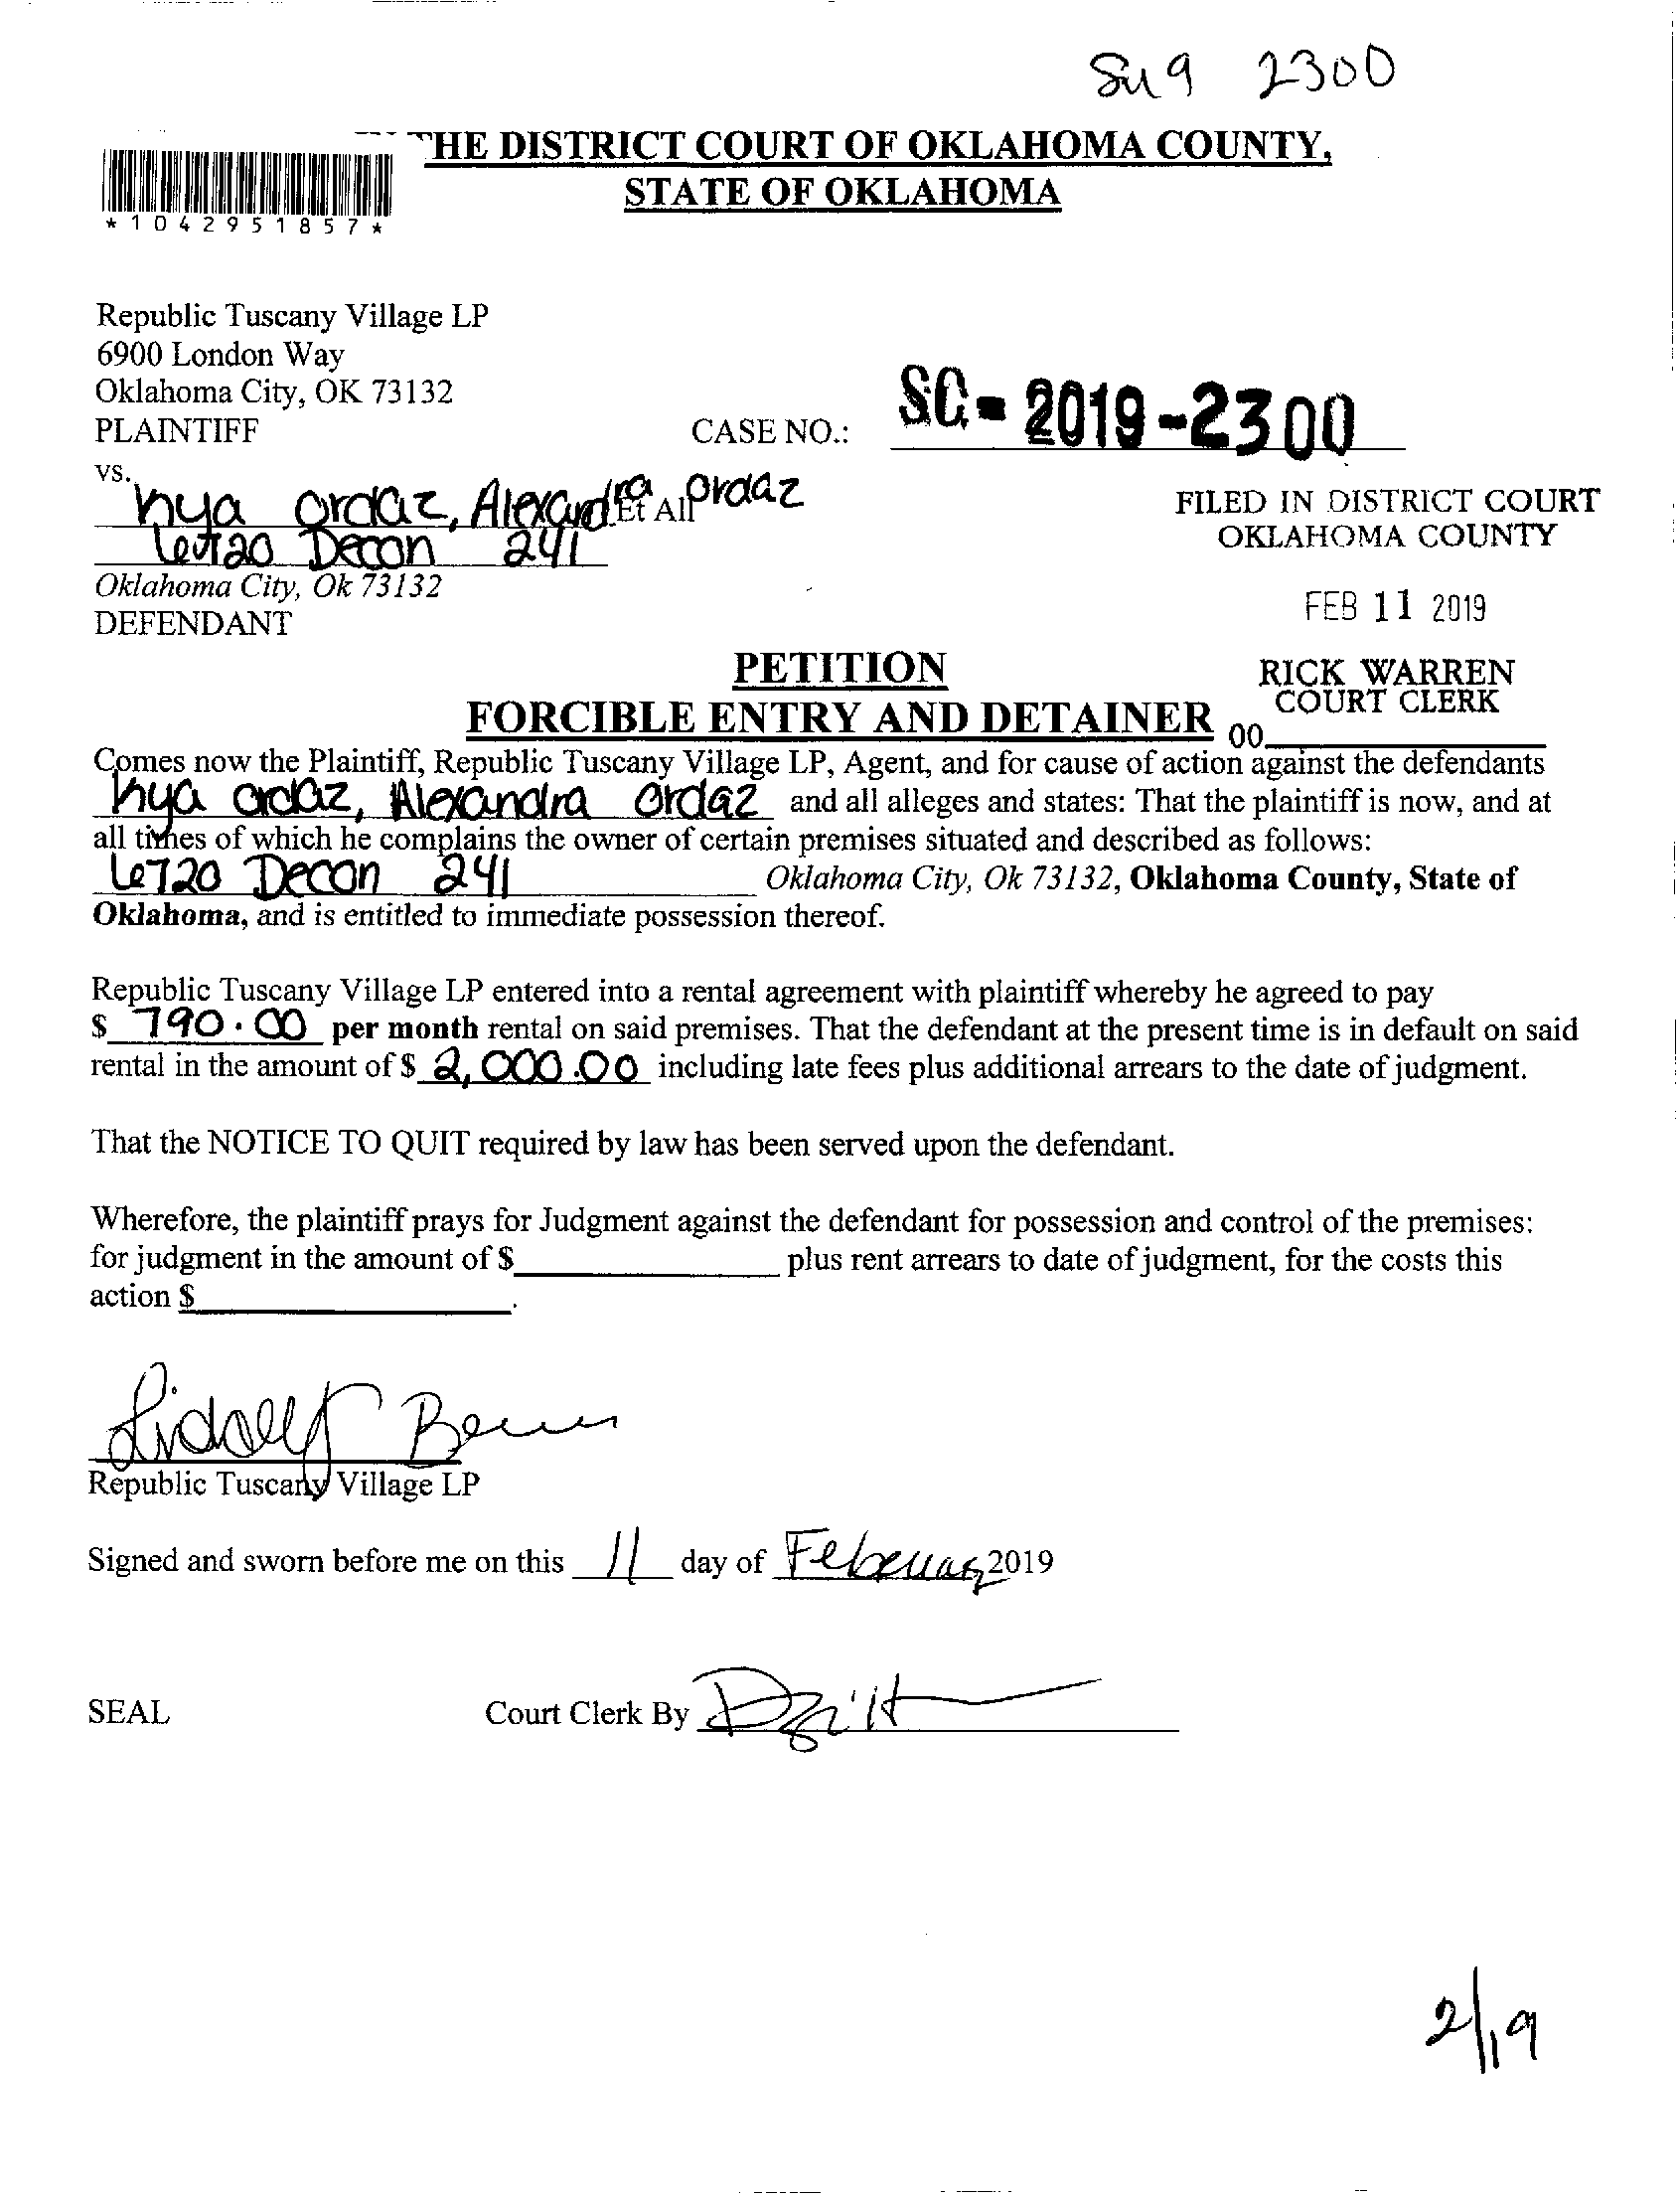 2300
THE DISTRICT COURT OF OKLAHOMA COUNTY,
STATE OF OKLAHOMA
*1042951857*
Republic Tuscany Village LP
6900 London Way
Oklahoma City, OK 73132
PLAINTIFF
CASE NO.: SC-2019-2300
vs.
ordaz, Alexandra ordaz Et All
6720 Decon 241
Oklahoma City, Ok 73132
DEFENDANT
FILED IN DISTRICT COURT
OKLAHOMA COUNTY
FEB 11 2019
RICK WARREN
COURT CLERK
00
PETITION
FORCIBLE ENTRY AND DETAINER
Comes now the Plaintiff, Republic Tuscany Village LP, Agent, and for cause of action against the defendants
ordaz, Alexandra Ordaz and all alleges and states: That the plaintiff is now, and at
all times of which he complains the owner of certain premises situated and described as follows:
6720 Decon 241 Oklahoma City, Ok 73132, Oklahoma County, State of
Oklahoma, and is entitled to immediate possession thereof.
Republic Tuscany Village LP entered into a rental agreement with plaintiff whereby he agreed to pay
$ 790.00 per month rental on said premises. That the defendant at the present time is in default on said
rental in the amount of $ 2,000.00 including late fees plus additional arrears to the date of judgment.
That the NOTICE TO QUIT required by law has been served upon the defendant.
Wherefore, the plaintiff prays for Judgment against the defendant for possession and control of the premises:
for judgment in the amount of $ plus rent arrears to date of judgment, for the costs this
action $ .
Republic Tuscany Village LP
Signed and sworn before me on this 11 day of February 2019
SEAL
Court Clerk By
2/19